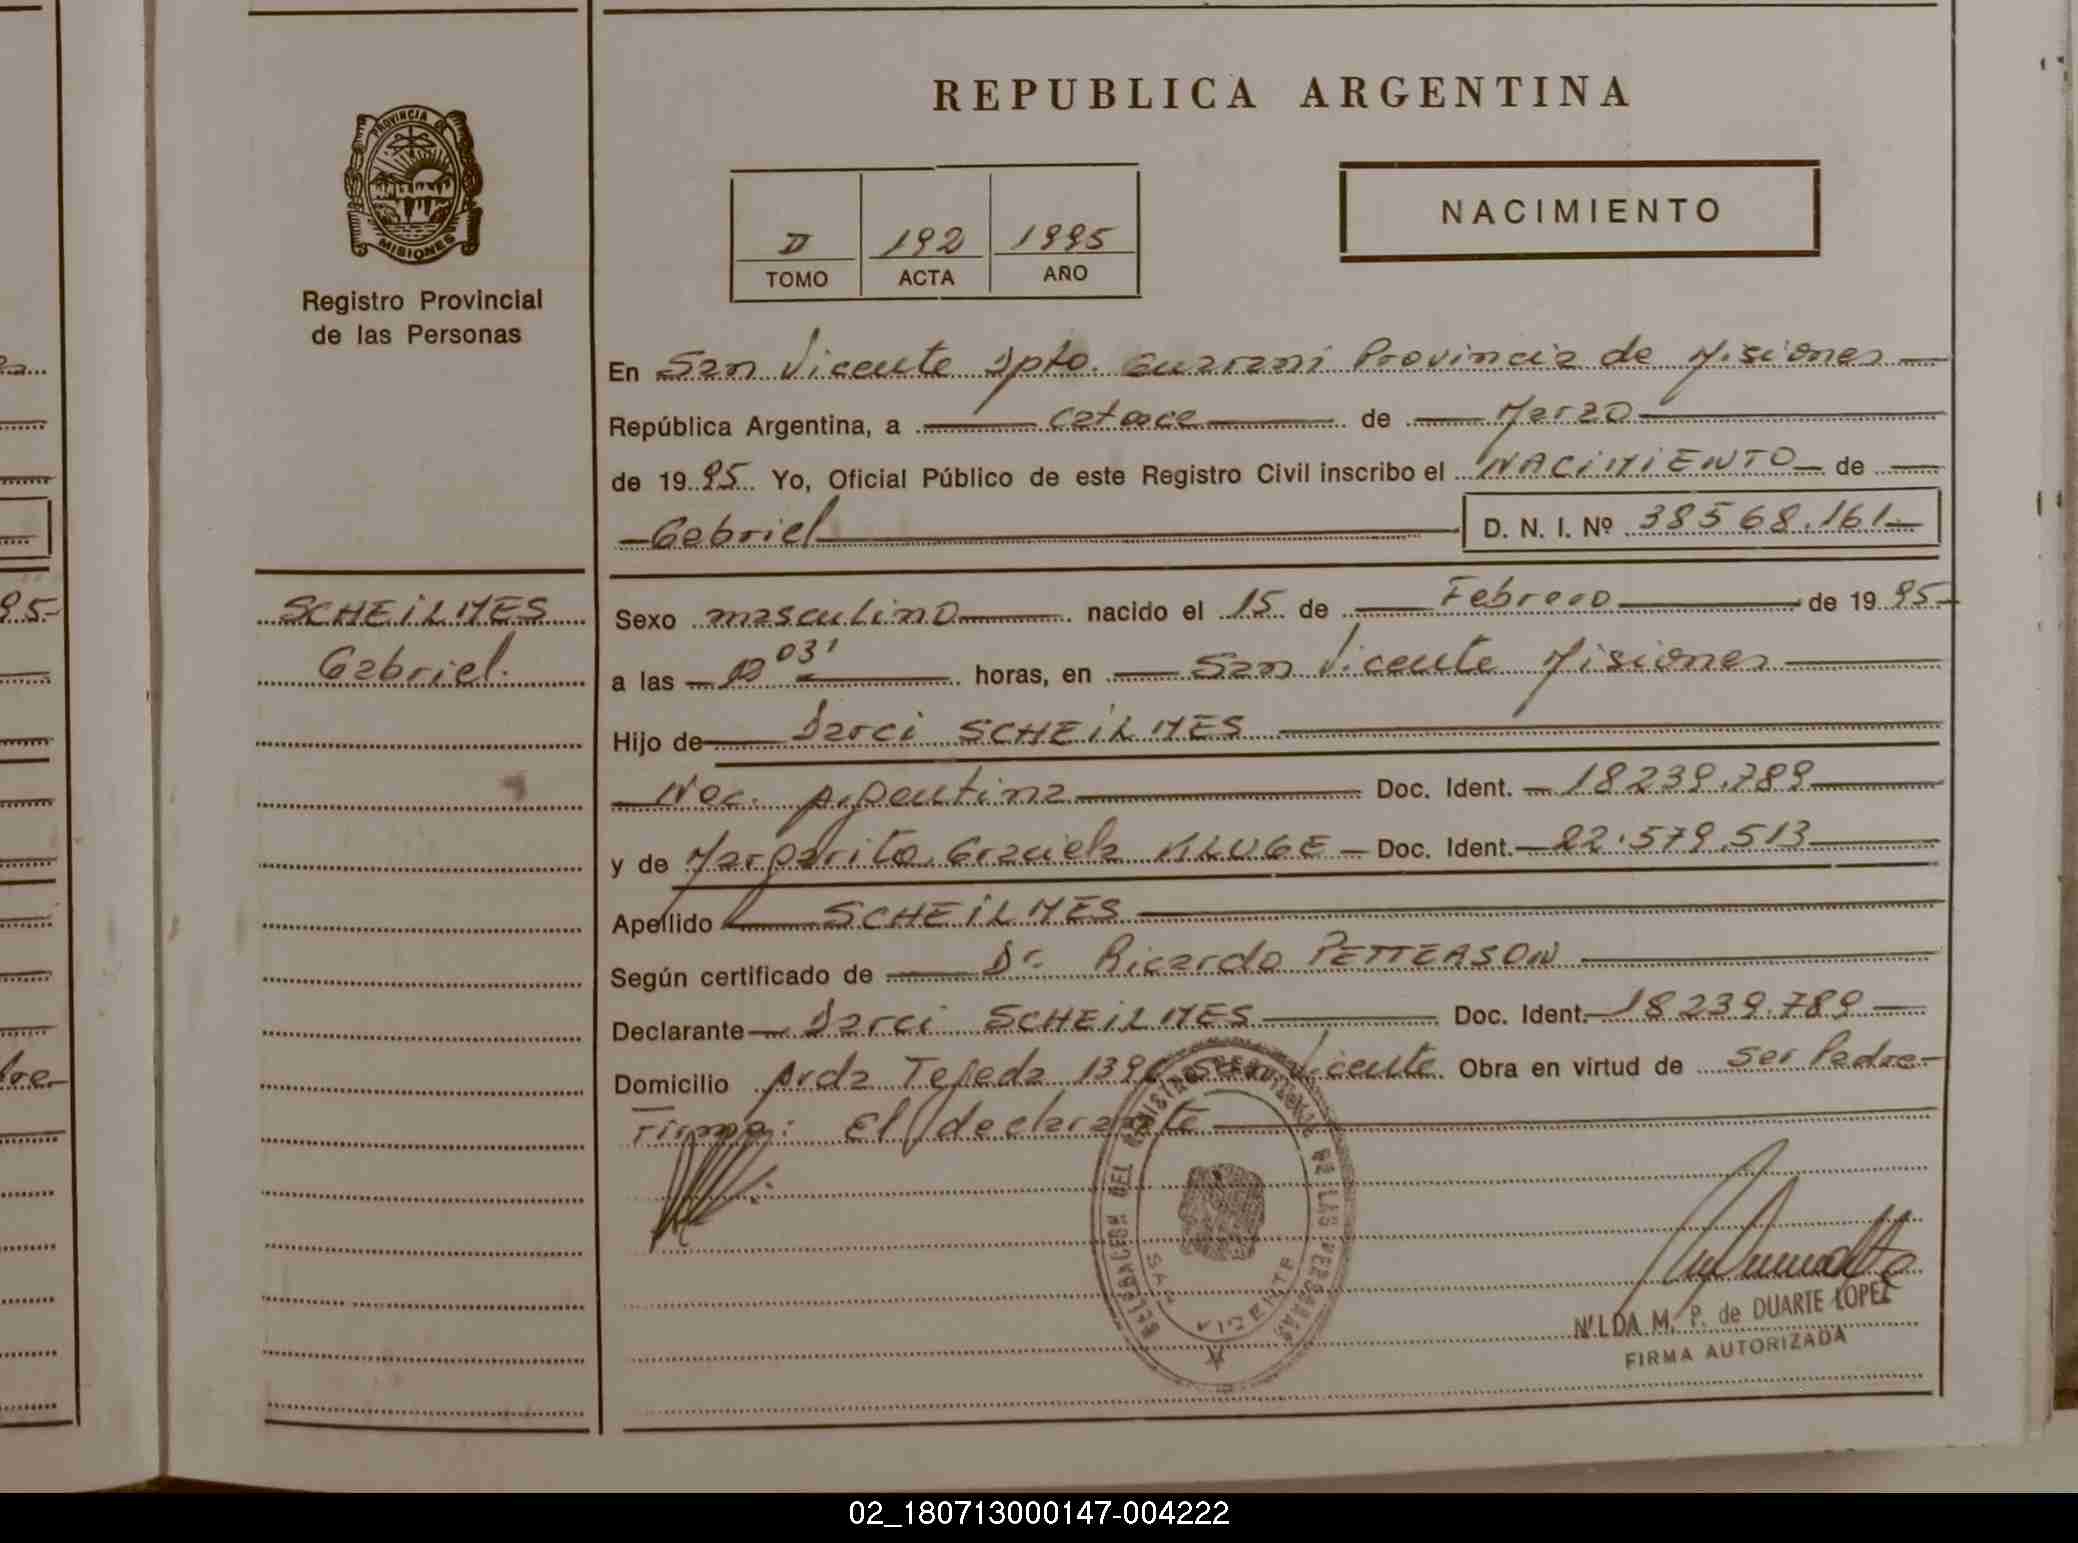 REPUBLICA ARGENTINA
PROVINCIA DE
MISIONES
Registro Provincial
de las Personas
NACIMIENTO
D 192 1995
TOMO ACTA AÑO
En San Vicente Dpto. Guarani Provincia de Misiones
República Argentina, a catorce de Marzo
de 19 95 Yo, Oficial Público de este Registro Civil inscribo el NACIMIENTO de
Gabriel D. N. I. Nº 38568.161
SCHEILMES
Gabriel.
Sexo masculino nacido el 15 de Febrero de 19 95
a las 03' horas, en San Vicente Misiones
Hijo de Darci SCHEILMES
Nac. Argentina Doc. Ident. 18239.789
y de Margarita Graciela KLUGE Doc. Ident. 22.579.513
Apellido SCHEILMES
Según certificado de Dr. Ricardo PETTERSON
Declarante Darci SCHEILMES Doc. Ident. 18239.789
Domicilio Avda Tejeda 139 San Vicente Obra en virtud de ser Padre
Firma: El declarante
DELEGACION DEL REGISTRO PROVINCIAL DE LAS PERSONAS
SAN VICENTE
NILDA M. P. de DUARTE LOPEZ
FIRMA AUTORIZADA
95
02_180713000147-004222